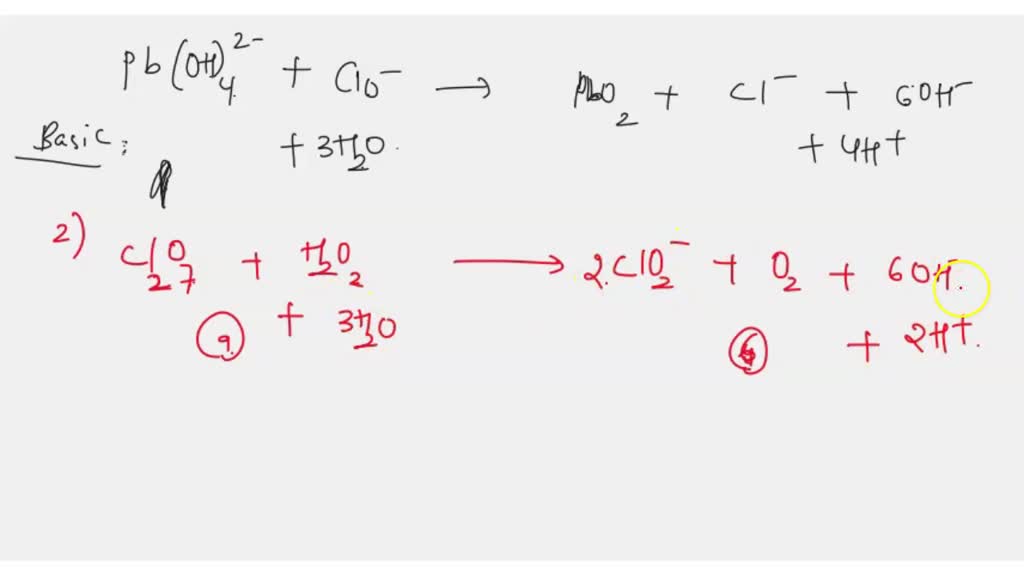 Pb(OH)₄²⁻ + ClO⁻ → PbO₂ + Cl⁻ + 6OH⁻
Basic: + 3H₂O. + 4H⁺
2) Cl₂O₇ + H₂O₂ → 2.ClO₂⁻ + O₂ + 6OH⁻.
9 + 3H₂O 6 + 2H⁺.